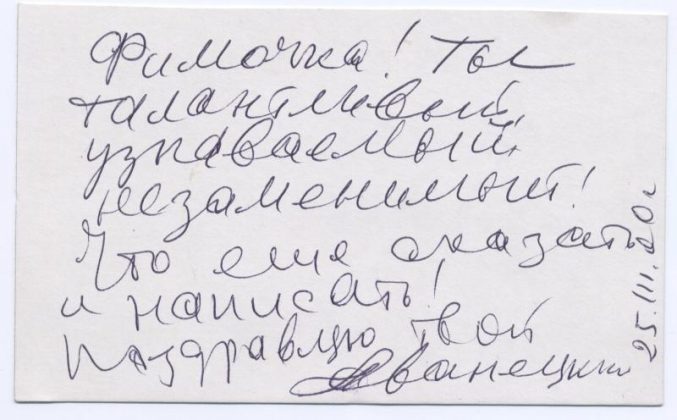 Фимочка! Ты
талантливый,
узнаваемый,
незаменимый!
Что еще сказать
и написать!
Поздравляю твой
Жванецкий
25.III.20г